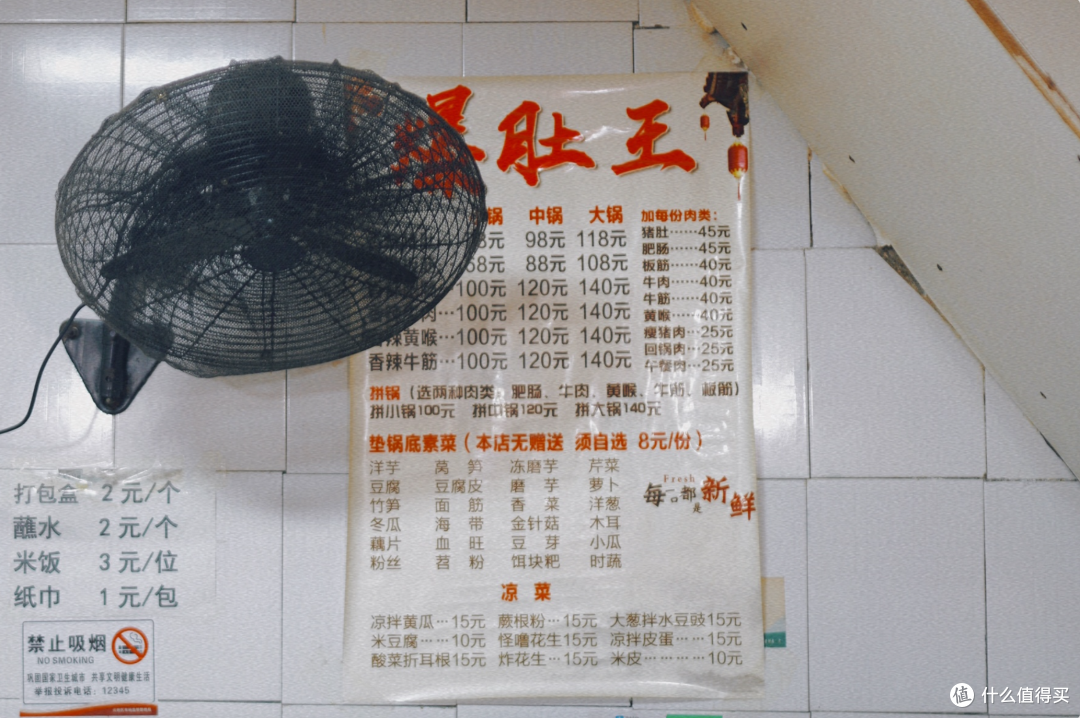 肚王
锅 中锅 大锅
8元 98元 118元
68元 88元 108元
100元 120元 140元
肉…100元 120元 140元
香辣黄喉…100元 120元 140元
香辣牛筋…100元 120元 140元
加每份肉类:
猪肚……45元
肥肠……45元
板筋……40元
牛肉……40元
牛筋……40元
黄喉……40元
瘦猪肉…25元
回锅肉…25元
午餐肉…25元
拼锅(选两种肉类:肥肠、牛肉、黄喉、牛筋、板筋)
拼小锅100元 拼中锅120元 拼大锅140元
垫锅底素菜(本店无赠送 须自选 8元/份)
洋芋 莴笋 冻磨芋 芹菜
豆腐 豆腐皮 磨芋 萝卜
竹笋 面筋 香菜 洋葱
冬瓜 海带 金针菇 木耳
藕片 血旺 豆芽 小瓜
粉丝 苕粉 饵块粑 时蔬
Fresh
每一口都是新鲜
凉菜
凉拌黄瓜…15元 蕨根粉…15元 大葱拌水豆豉15元
米豆腐……10元 怪噜花生15元 凉拌皮蛋……15元
酸菜折耳根15元 炸花生…15元 米皮…………10元
打包盒 2元/个
蘸水 2元/个
米饭 3元/位
纸巾 1元/包
禁止吸烟
NO SMOKING
巩固国家卫生城市 共享文明健康生活
举报投诉电话:12345
值 什么值得买